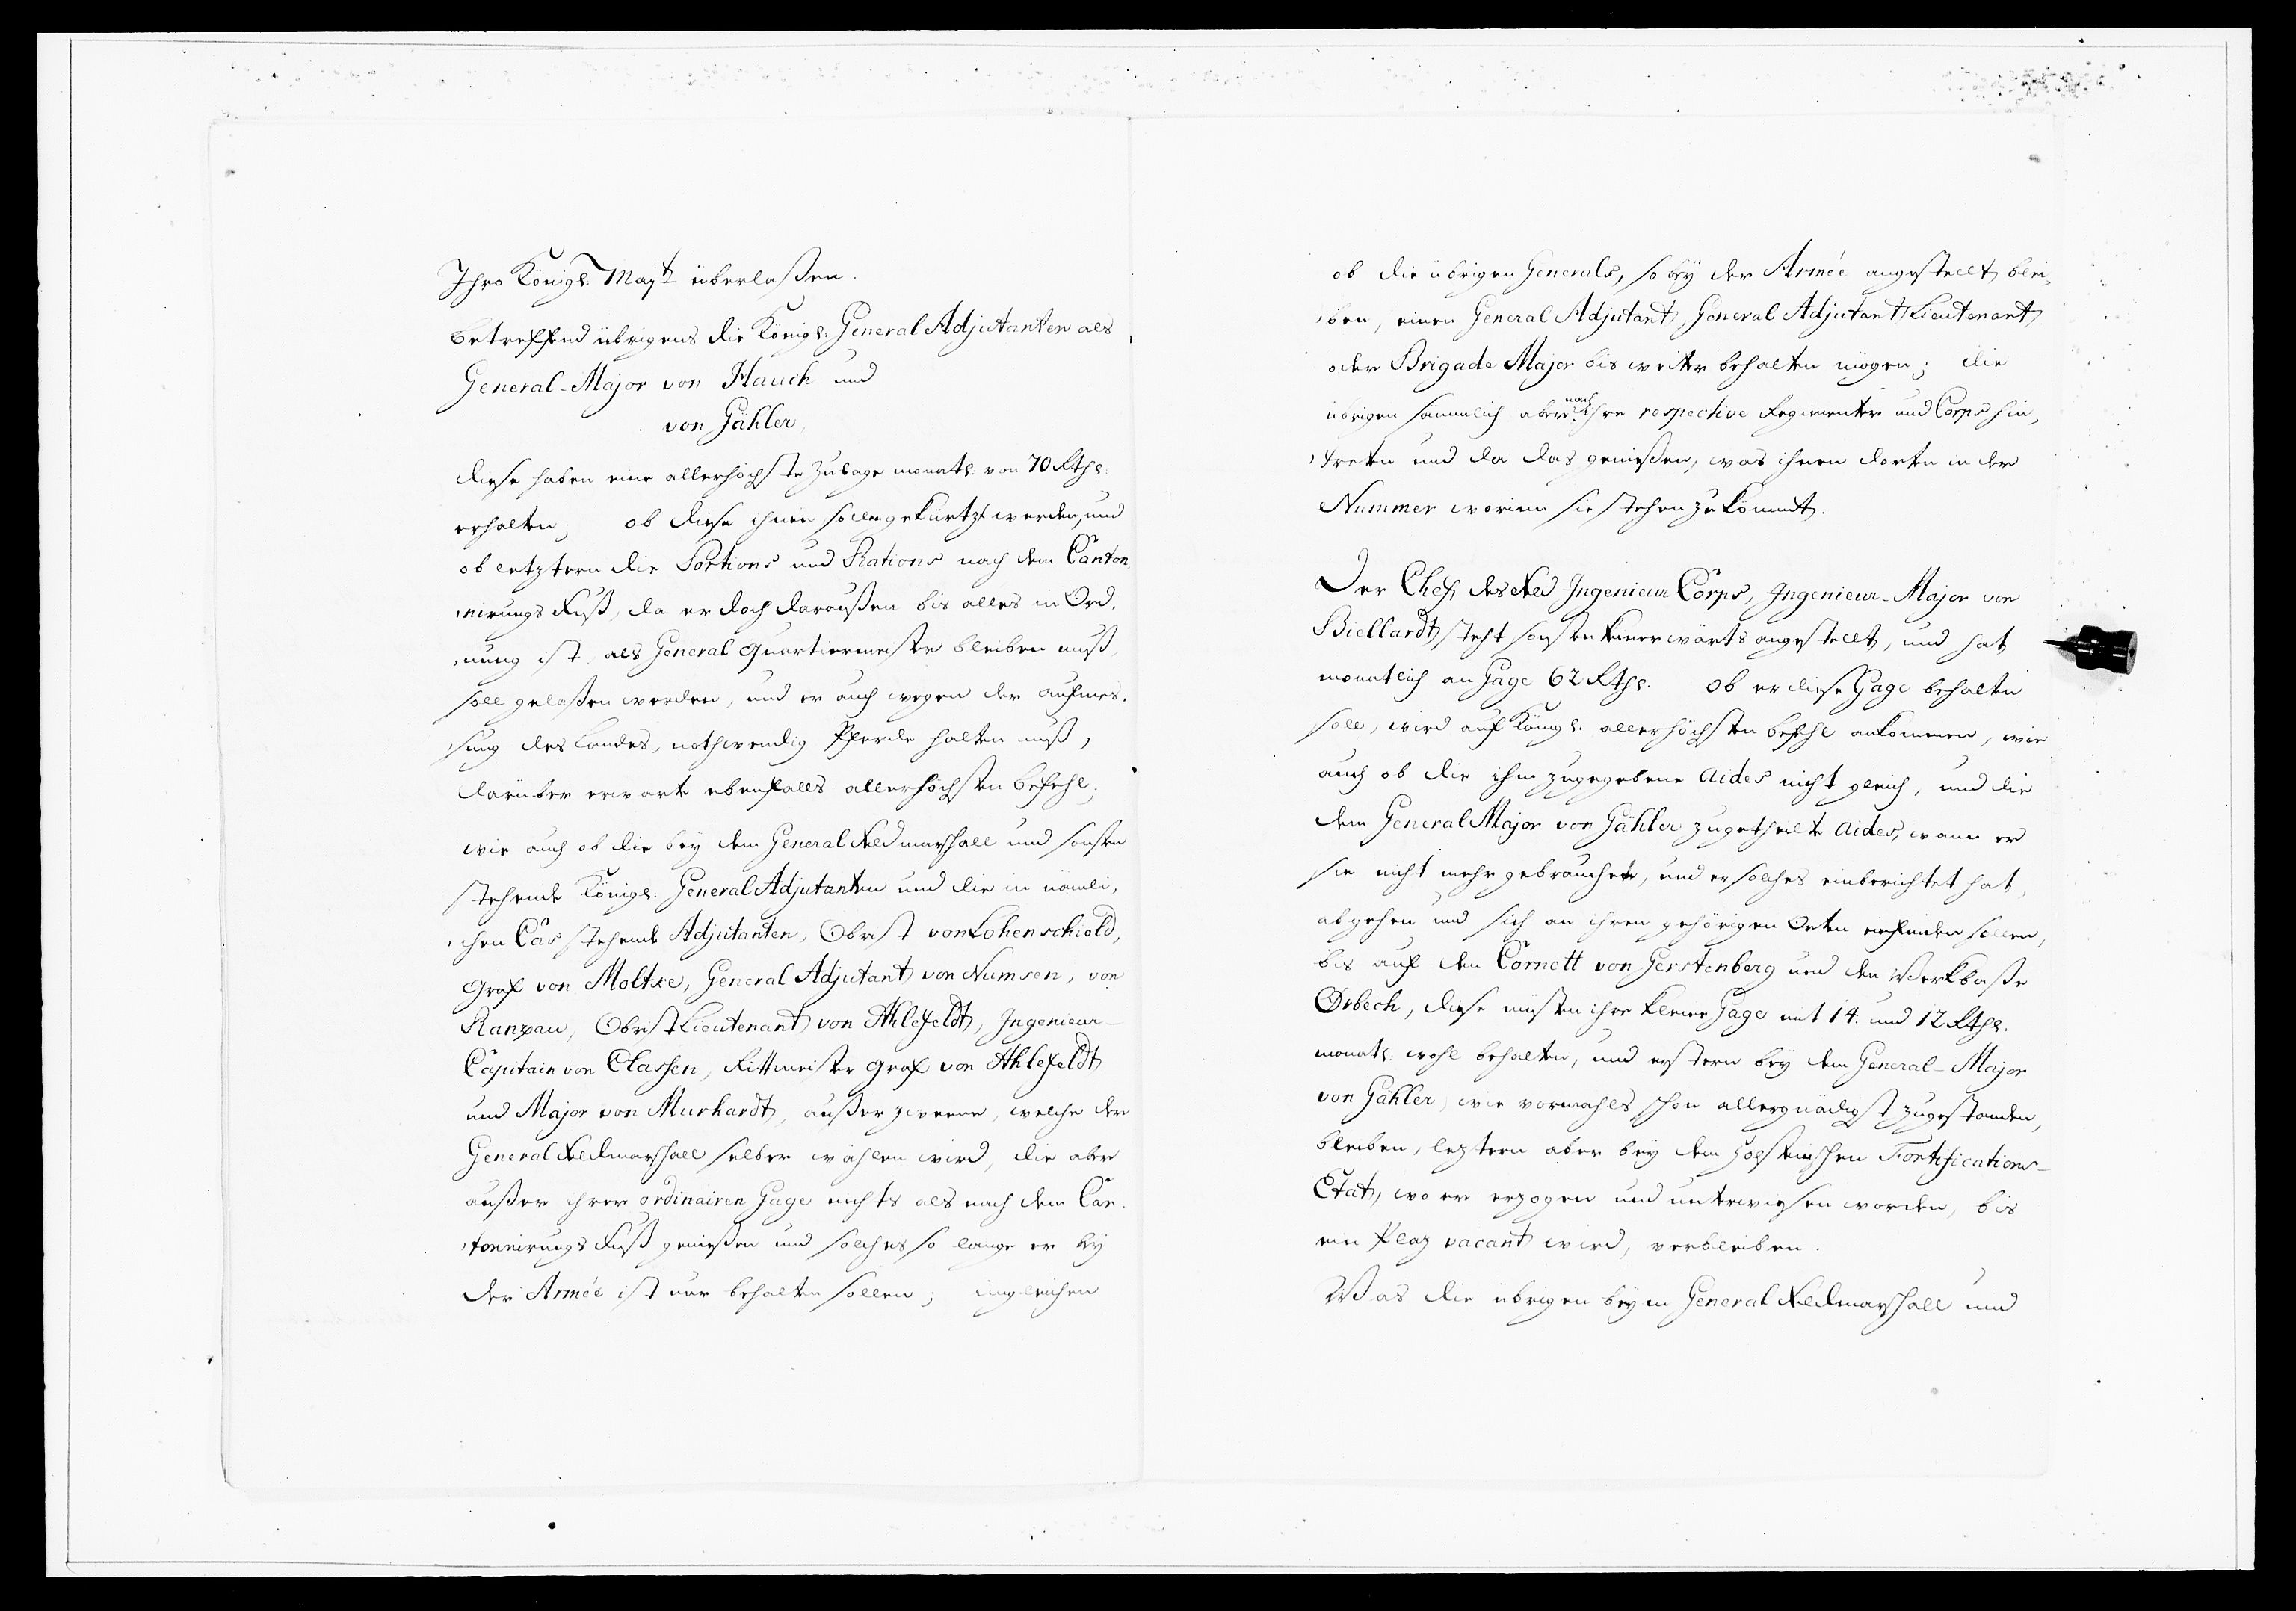 Ihro Königl. Majt. überlaßen.
Betreffend übrigens die Königl. General Adjutanten als
General-Major von Hauch und
von Gähler,
diese haben eine allerhöchste Zulage monatl. von 70 Rthl.
erhalten; ob diese ihnen sollen gekürtzt werden, und
ob letztern die Portions und Rations nach dem Canton
nirungs Fuß, da er doch daraußen bis alles in Ord,
nung ist, als General Quartiermeister bleiben muß,
soll gelaßen werden, und er auch wegen der aufmes,
sung des Landes, nothwendig Pferde halten muß,
darüber erwarte ebenfalls allerhöchsten Befehl;
wie auch ob die bey dem General Feldmarschall und sonsten
stehende Königl. General Adjutanten und die in nämli,
chen Cas stehende Adjutanten, Obrist von Lohenschiold,
Graf von Moltke, General Adjutant von Numsen, von
Ranzau, Obrist Lieutenant von Ahlefeldt, Ingenieur-
Capitain von Classen, Rittmeister Graf von Ahlefeldt
und Major von Murhardt, außer zweene, welche der
General Feldmarschall selber wählen wird, die aber
außer ihrer ordinairen Gage nichts als nach dem Can,
tonnirungs Fuß genießen und solches so lange er bey
der Armée ist nur behalten sollen; ingleichen
ob die übrigen Generals, so bey der Armée angestellt blei,
ben, einen General Adjutant, General Adjutant Lieutenant
oder Brigade Major bis weiter behalten mögen; die
übrigen sämmlich aber nach ihre respective Regimenter und Corps hin,
treten und da das genießen, was ihnen dorten in der
Nummer worinn sie stehen zukömmt.
Der Chef des Feld Ingenieur Corps, Ingenieur-Major von
Biellardt steht sonsten keinerwärts angestellt, und hat
monatlich an Gage 62 Rthl. Ob er diese Gage behalten
soll, wird auf Königl. allerhöchsten Befehl ankommen, wie
auch ob die ihm zugegebene Aides nicht gleich, und die
dem General Major von Gähler zugetheilte Aides, wann er
sie nicht mehr gebrauchet, und er solches einberichtet hat,
abgehen und sich an ihren gehörigen Orten einfinden sollen,
bis auf den Cornett von Gerstenberg und den Werkbaße
Örbech, diese müsten ihre kleine Gage mit 14. und 12 Rthl.
monatl. wohl behalten, und erstern bey dem General-Major
von Gähler, wie vormahls schon allergnädigst zugestanden,
bleiben, leztern aber bey dem Holsteinschen Fortifications-
Etat, wo er erzogen und unterwiesen worden, bis
ein Plaz vacant wird, verbleiben.
Was die übrigen beym General Feldmarschall und